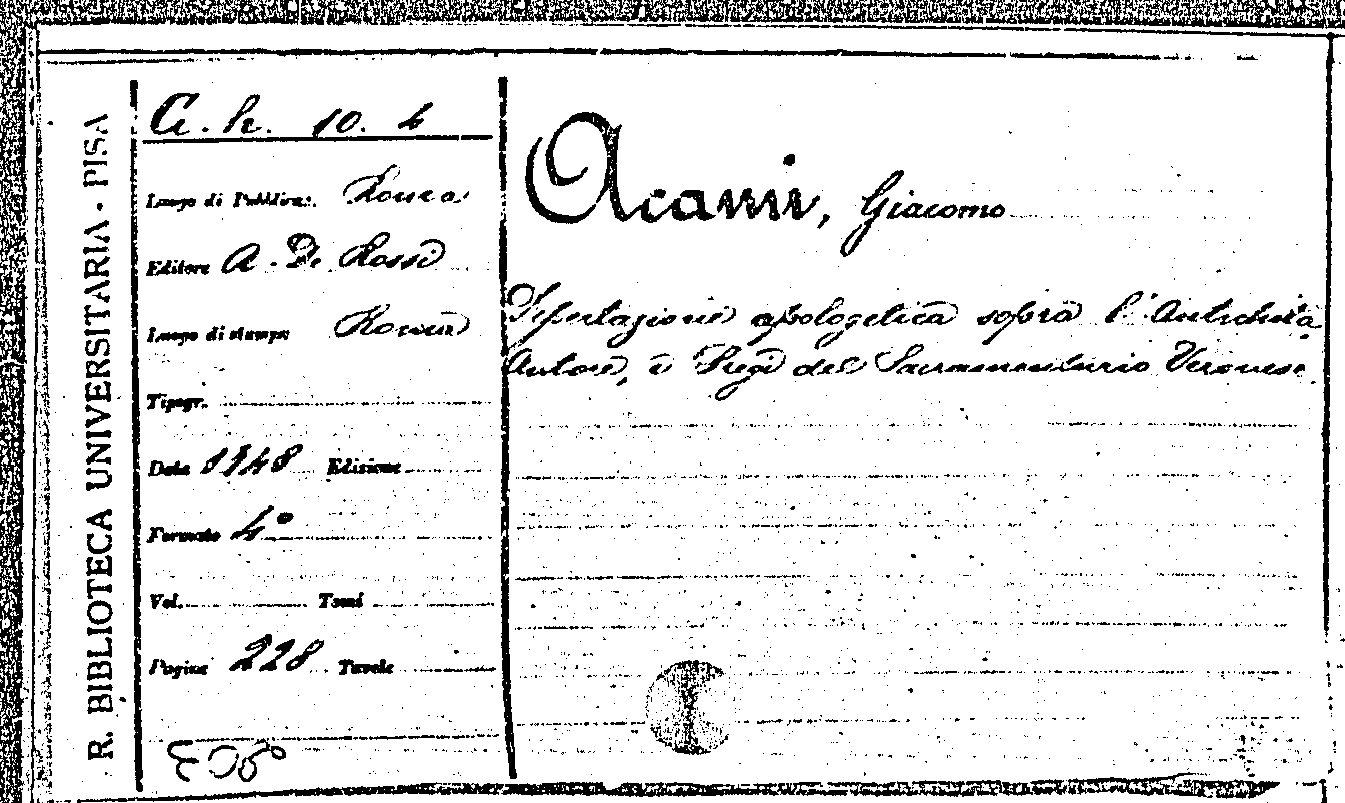 R. BIBLIOTECA UNIVERSITARIA - PISA
A. h. 10. 4
Luogo di Pubblicaz. Roma
Editore A. De Rossi
Luogo di stampa Roma
Tipogr.
Data 1748 Edizione
Formato 4°
Vol. Tomi
Pagine 228 Tavole
Acami, Giacomo
Dissertazione apologetica sopra l'Antichità
Autore, e Pregi del Sacramentario Veronese